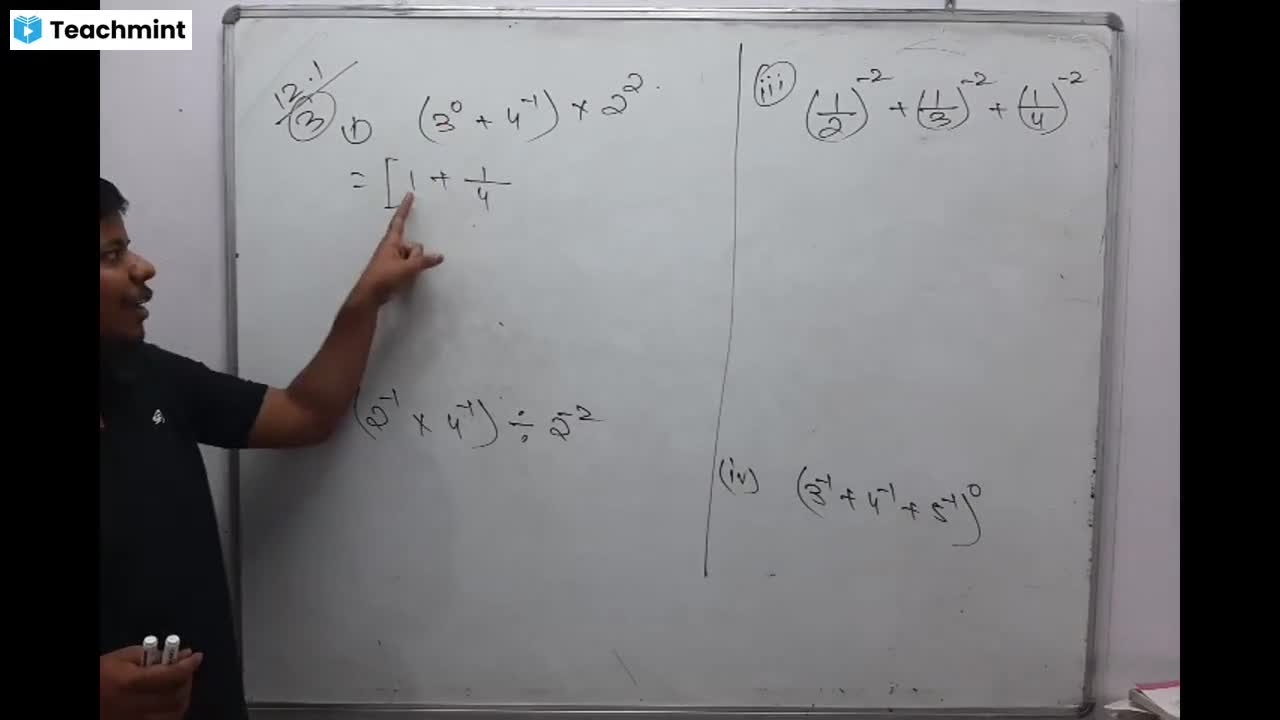 Teachmint
12.1
(3) (i) (3⁰ + 4⁻¹) × 2²
= [1 + 1/4
(2⁻¹ × 4⁻¹) ÷ 2⁻²
(iii) (1/2)⁻² + (1/3)⁻² + (1/4)⁻²
(iv) (3⁻¹ + 4⁻¹ + 5⁻¹)⁰